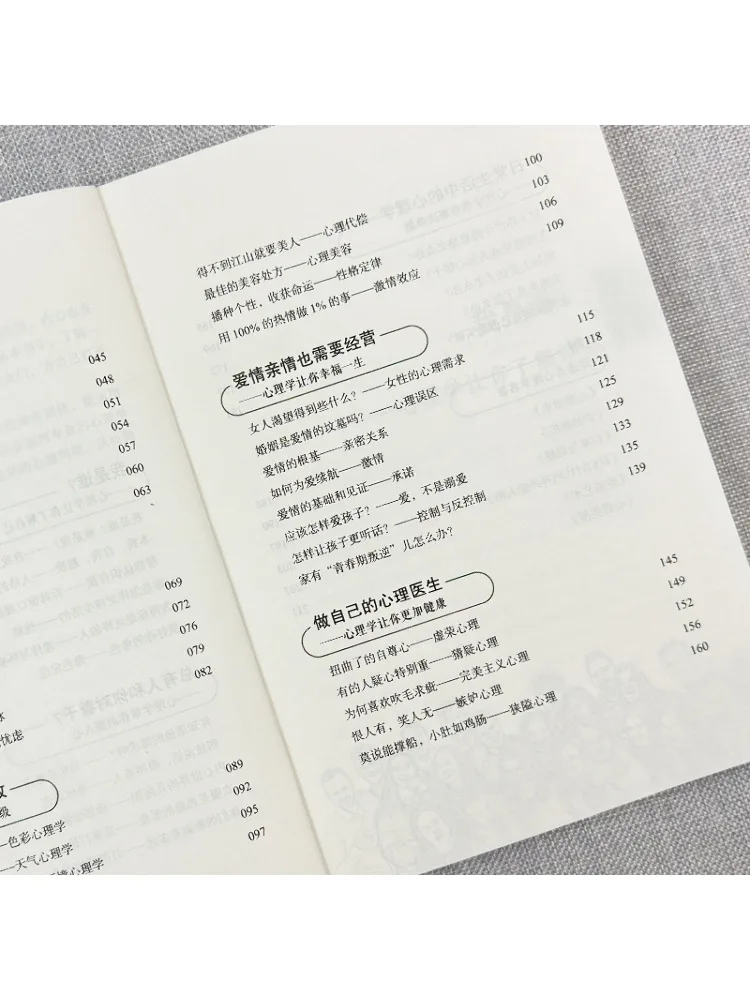 045
048
051
054
057
060
063
069
072
076
079
忧虑 082
级
色彩心理学 089
—天气心理学 092
境心理学 095
097
得不到江山就要美人——心理代偿 100
最佳的美容处方——心理美容 103
播种个性，收获命运——性格定律 106
用100%的热情做1%的事——激情效应 109
爱情亲情也需要经营
——心理学让你幸福一生
女人渴望得到些什么？——女性的心理需求 115
婚姻是爱情的坟墓吗？——心理误区 118
爱情的根基——亲密关系 121
如何为爱续航——激情 125
爱情的基础和见证——承诺 129
应该怎样爱孩子？——爱，不是溺爱 133
怎样让孩子更听话？——控制与反控制 135
家有“青春期叛逆”儿怎么办？ 139
做自己的心理医生
——心理学让你更加健康
扭曲了的自尊心——虚荣心理 145
有的人疑心特别重——猜疑心理 149
为何喜欢吹毛求疵——完美主义心理 152
恨人有，笑人无——嫉妒心理 156
莫说能撑船，小肚如鸡肠——狭隘心理 160